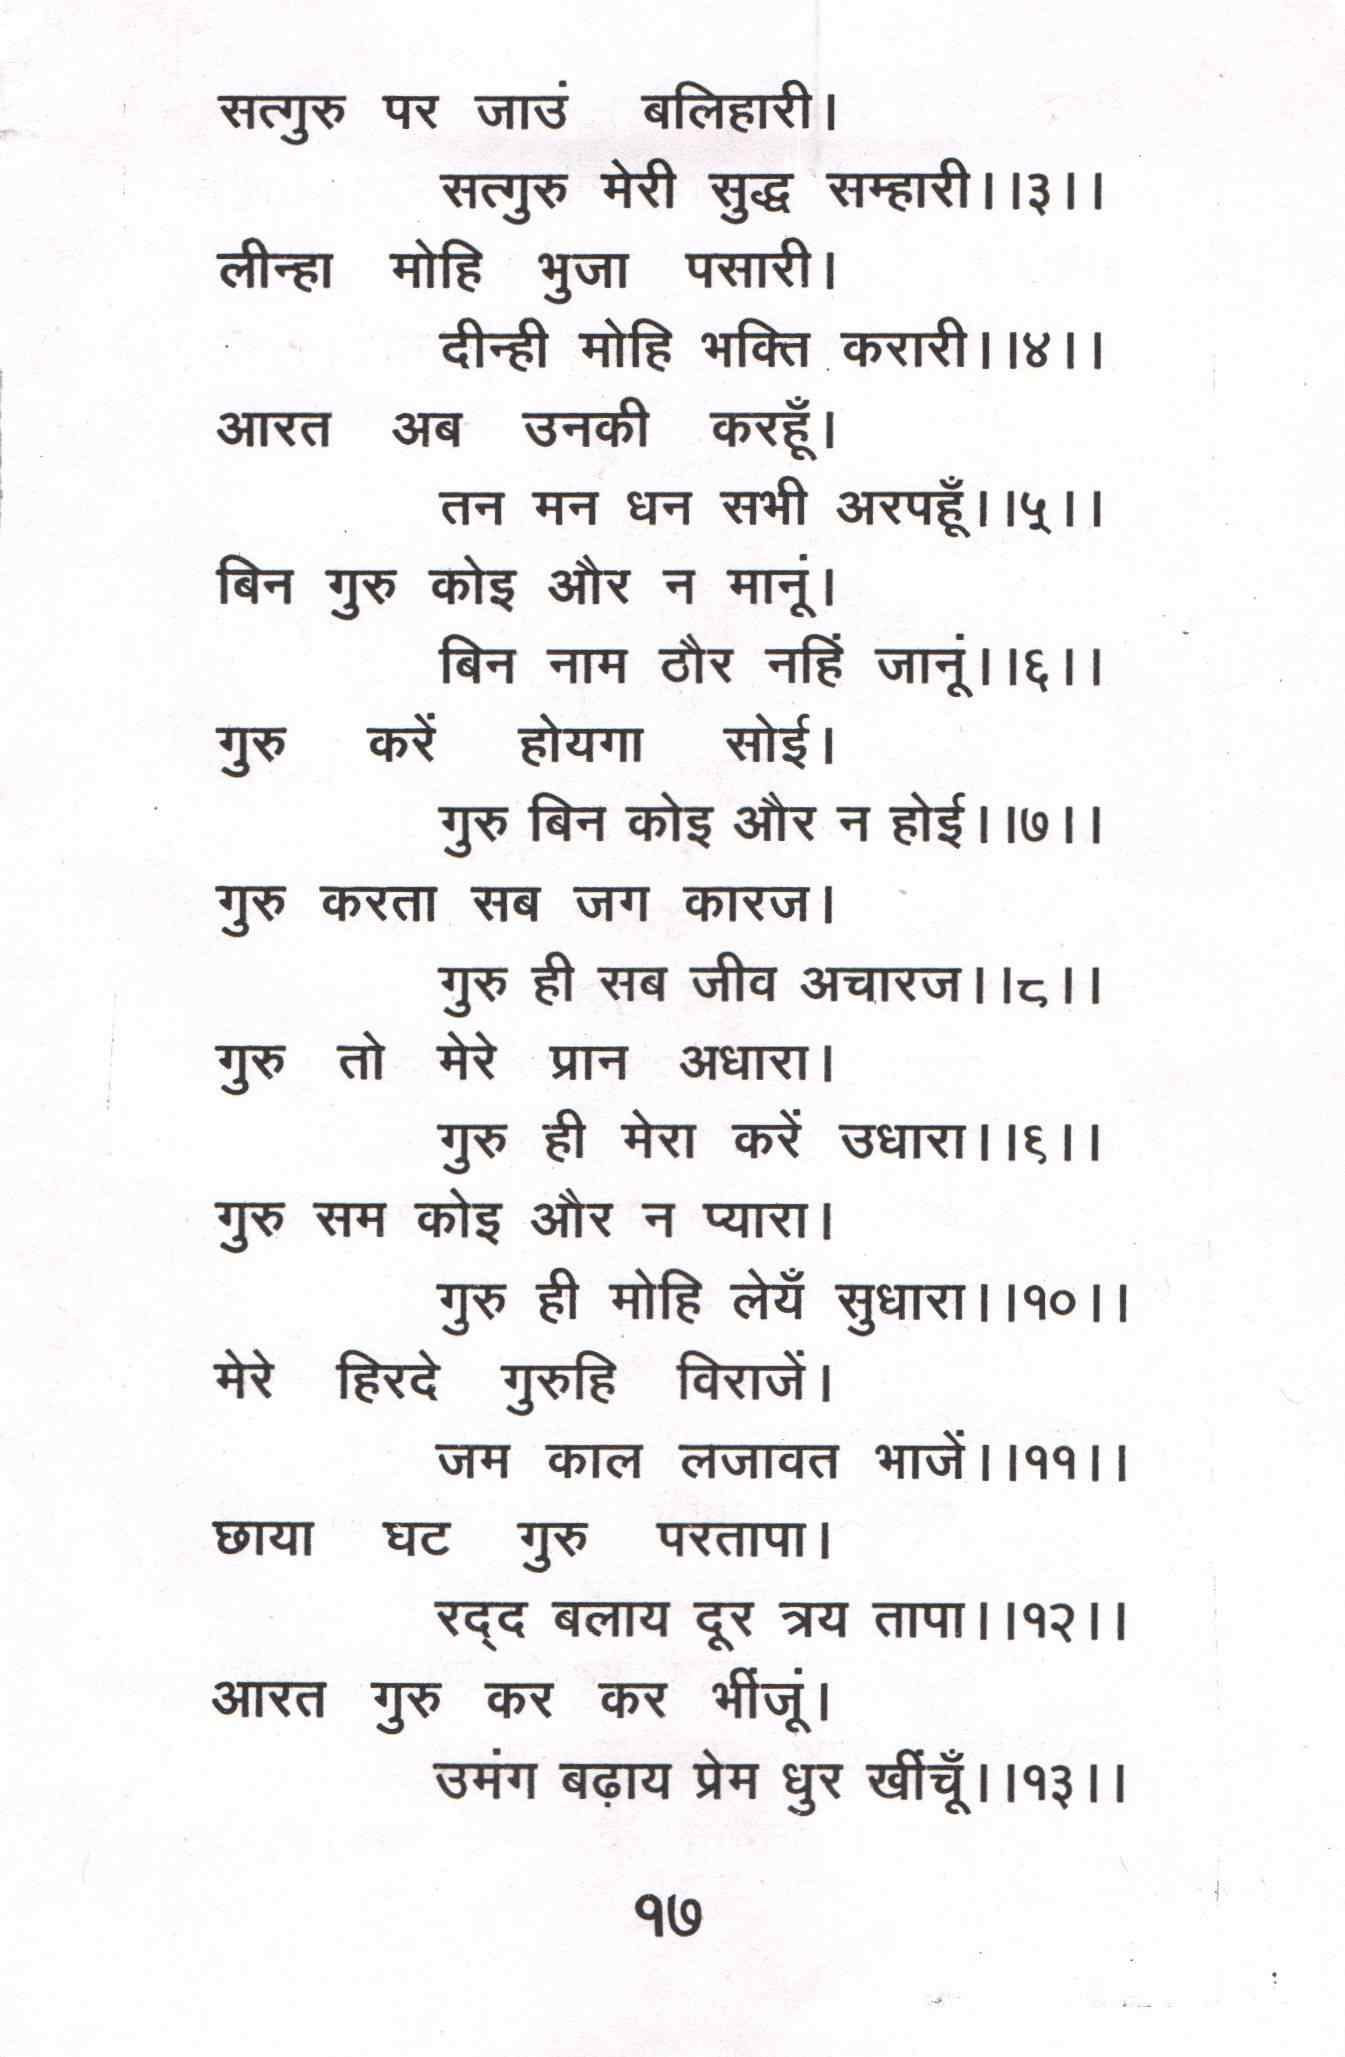 सत्गुरु पर जाउं बलिहारी।
सत्गुरु मेरी सुद्ध सम्हारी।।३।।
लीन्हा मोहि भुजा पसारी।
दीन्ही मोहि भक्ति करारी।।४।।
आरत अब उनकी करहूँ।
तन मन धन सभी अरपहूँ।।५।।
बिन गुरु कोइ और न मानूं।
बिन नाम ठौर नहिं जानूं।।६।।
गुरु करें होयगा सोई।
गुरु बिन कोइ और न होई।।७।।
गुरु करता सब जग कारज।
गुरु ही सब जीव अचारज।।८।।
गुरु तो मेरे प्रान अधारा।
गुरु ही मेरा करें उधारा।।९।।
गुरु सम कोइ और न प्यारा।
गुरु ही मोहि लेयँ सुधारा।।१०।।
मेरे हिरदे गुरुहि विराजें।
जम काल लजावत भाजें।।११।।
छाया घट गुरु परतापा।
रद्द बलाय दूर त्रय तापा।।१२।।
आरत गुरु कर कर भींजूं।
उमंग बढ़ाय प्रेम धुर खींचूँ।।१३।।
१७